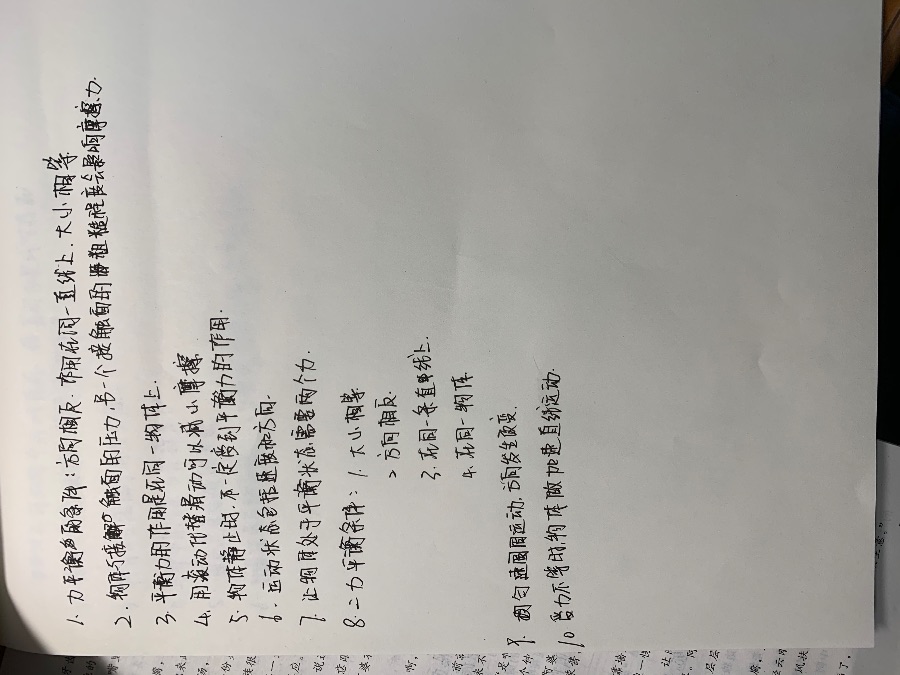 1. 力平衡的条件：方向相反. 作用在同一直线上. 大小相等
2. 物体接触面的压力, 另一个接触面的粗糙程度会影响摩擦力.
3. 平衡力的作用是在同一物体上.
4. 用滚动代替滑动可以减小摩擦
5. 物体静止时. 不一定受到平衡力的作用.
6. 运动状态包括速度和方向.
7. 让物体处于平衡状态需要两个力.
8. 二力平衡条件: 1. 大小相等
2 方向相反
3. 在同一条直线上.
4. 在同一物体
9. 匀速圆周运动, 方向发生改变.
10 受力不等时, 物体做加速直线运动.